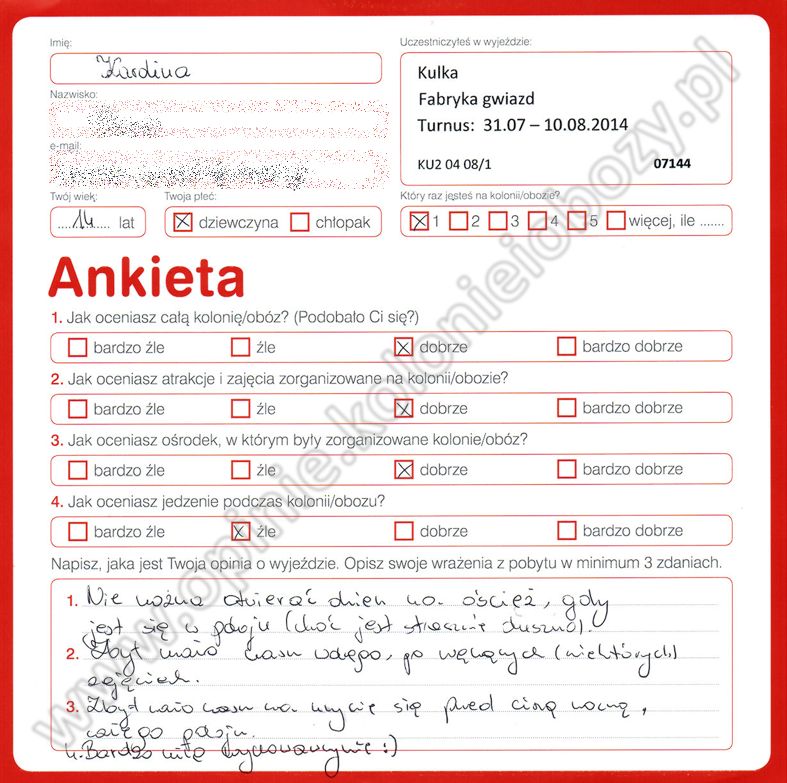 Imię:
Karolina
Uczestniczyłeś w wyjeździe:
Kulka
Fabryka gwiazd
Turnus: 31.07 – 10.08.2014
KU2 04 08/1 07144
Nazwisko:
e-mail:
Twój wiek:
....14.... lat
Twoja płeć:
dziewczyna chłopak
Który raz jesteś na kolonii/obozie?
1 2 3 4 5 więcej, ile .......
Ankieta
1. Jak oceniasz całą kolonię/obóz? (Podobało Ci się?)
bardzo źle źle dobrze bardzo dobrze
2. Jak oceniasz atrakcje i zajęcia zorganizowane na kolonii/obozie?
bardzo źle źle dobrze bardzo dobrze
3. Jak oceniasz ośrodek, w którym były zorganizowane kolonie/obóz?
bardzo źle źle dobrze bardzo dobrze
4. Jak oceniasz jedzenie podczas kolonii/obozu?
bardzo źle źle dobrze bardzo dobrze
Napisz, jaka jest Twoja opinia o wyjeździe. Opisz swoje wrażenia z pobytu w minimum 3 zdaniach.
1. Nie można otwierać okien na oścież, gdy
jest się w pokoju (choć jest strasznie duszno).
2. Zbyt mało czasu wolnego, po męczących (niektórych)
zajęciach.
3. Zbyt mało czasu na umycie się przed ciszą nocną,
całego pokoju.
4. Bardzo miłe wychowawczynie :)
www.opinie.kolonieiobozy.pl